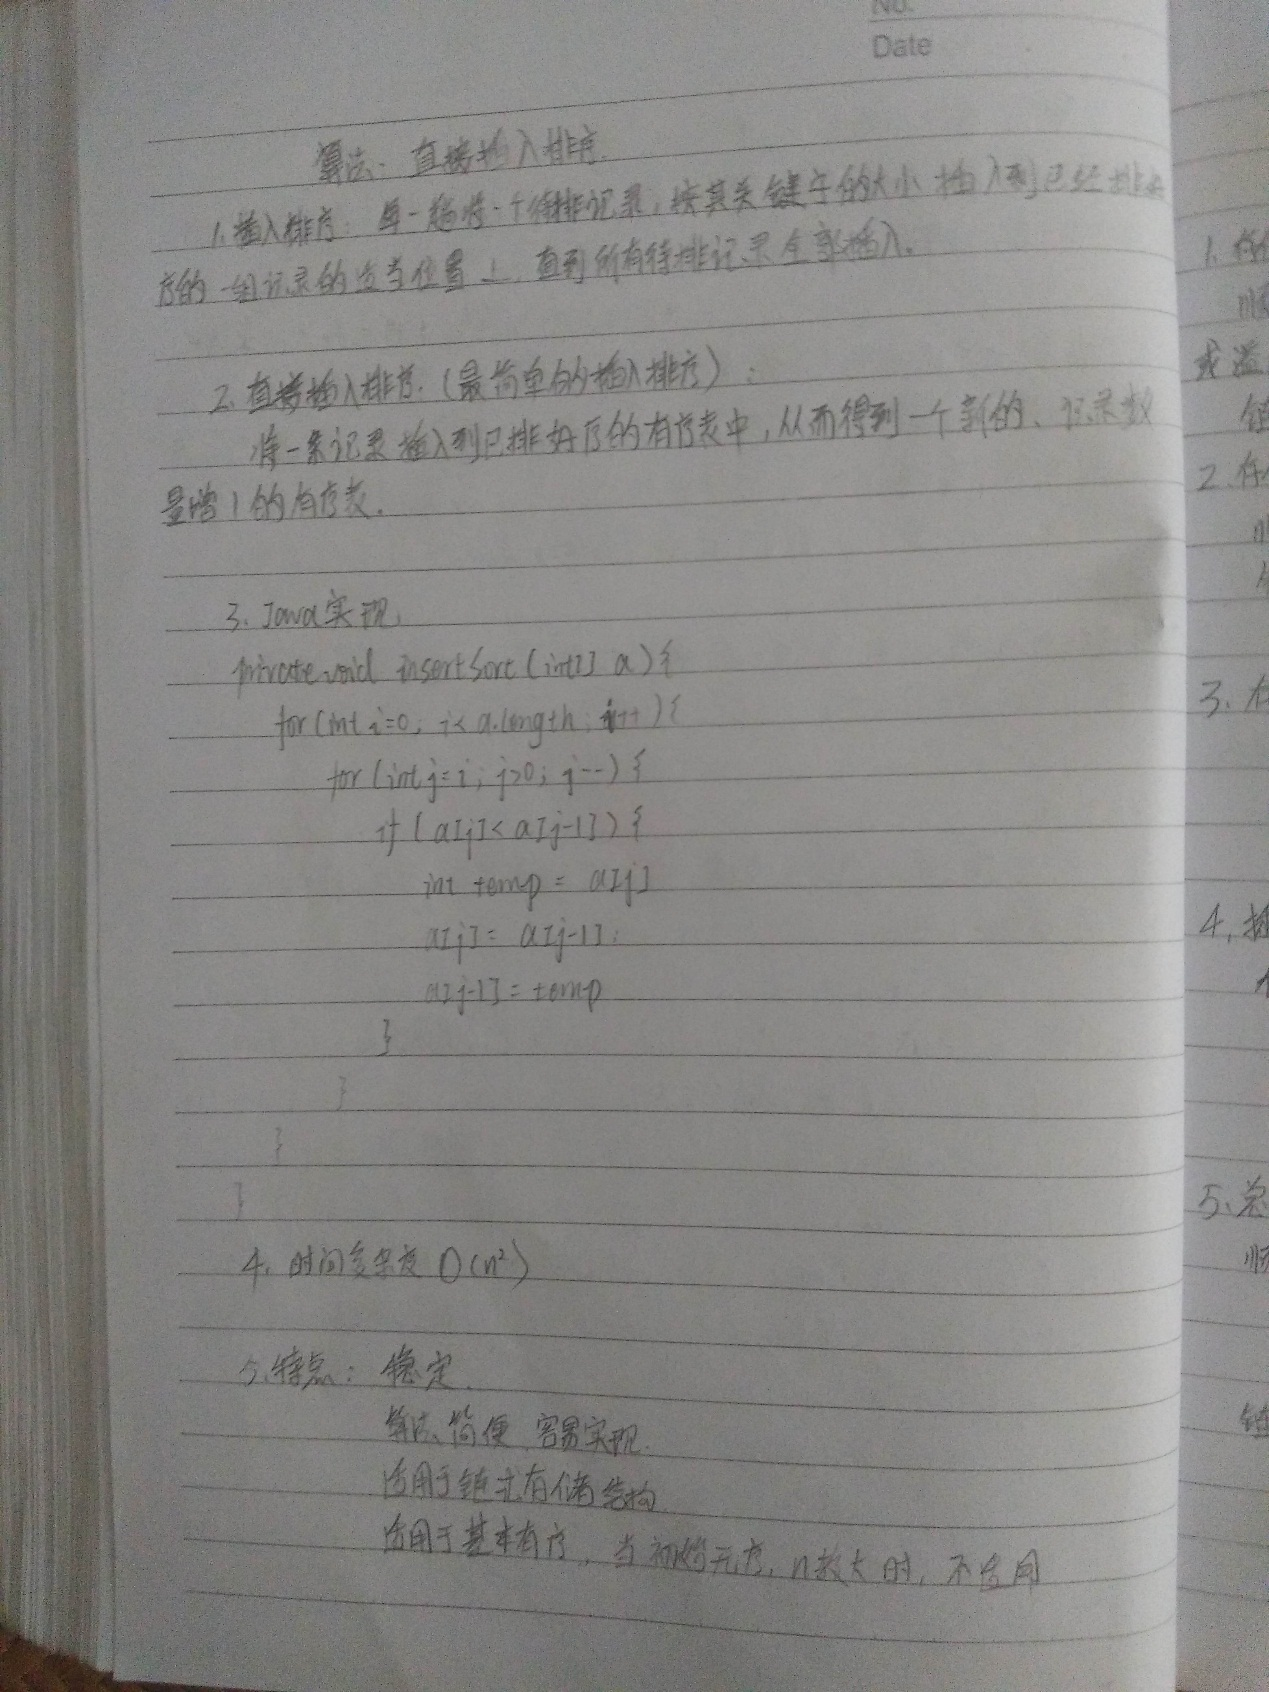 No.
Date
算法: 直接插入排序.
1. 插入排序: 每一趟将一个待排记录, 按其关键字的大小插入到已经排好
序的一组记录的适当位置上, 直到所有待排记录全部插入.
2. 直接插入排序. (最简单的插入排序):
将一条记录插入到已排好序的有序表中, 从而得到一个新的、记录数
量增1的有序表.
3. Java实现
private void insertSort (int[] a) {
for (int i=0; i< a.length; i++) {
for (int j=i; j>0; j--) {
if (a[j]< a[j-1]) {
int temp = a[j]
a[j] = a[j-1];
a[j-1] = temp
}
}
}
}
4. 时间复杂度 O(n²)
5. 特点: 稳定.
算法简便, 容易实现.
适用于链式存储结构
适用于基本有序, 当初始无序, n较大时, 不适用
1.
或
2. 存
3.
4.
5. 总
顺